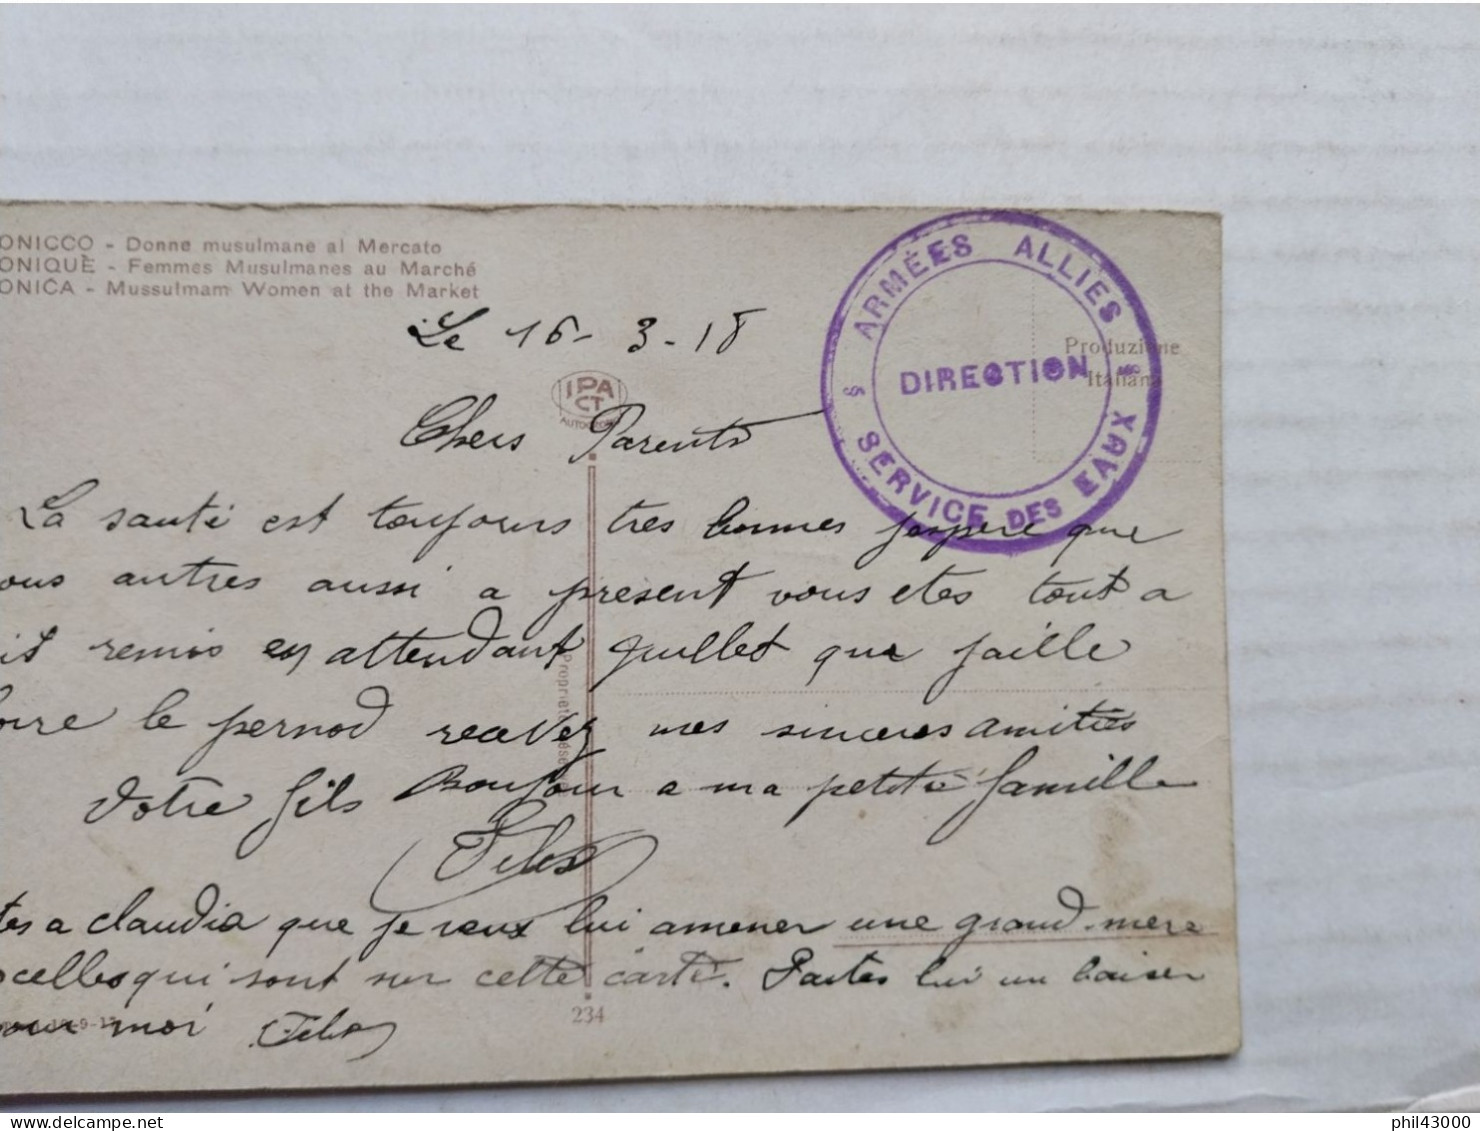 ONICCO - Donne musulmane al Mercato
ONIQUE - Femmes Musulmanes au Marché
ONICA - Mussulmam Women at the Market
ARMÉES ALLIÉES
DIRECTION
SERVICE DES EAUX
Produzione
Italiana
Le 16-3-18
IPA
CT
AUTOCROM
Chers Parents
La santé est toujours tres bonnes j'espere que
ous autres aussi a present vous etes tout a
it remis en attendant juillet que j'aille
oire le pernod recevez mes sinceres amitiés
Votre fils Bonjour a ma petite famille
tes a claudia que je veux lui amener une grand-mere
celles qui sont sur cette carte. Faites lui un baiser
pour moi
234
delcampe.net
phil43000